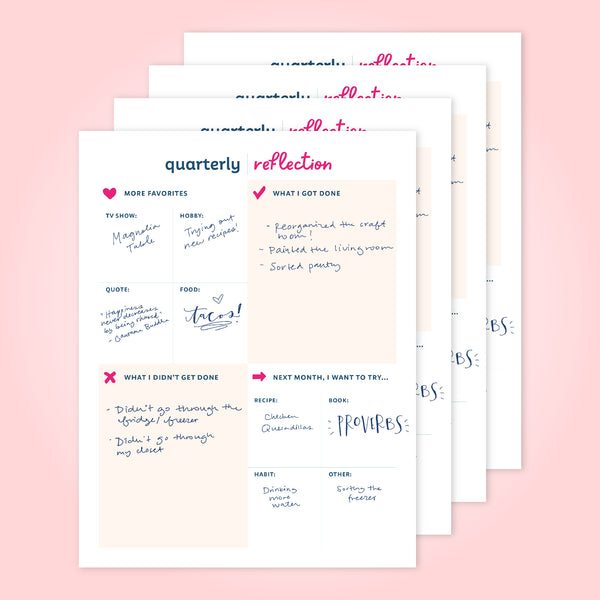 quarterly reflection
quarterly reflection
quarterly reflection
quarterly reflection
MORE FAVORITES
TV SHOW:
Magnolia
Table
HOBBY:
Trying out
new recipes!
QUOTE:
- "Happiness
never decreases
by being shared."
- Gautama Buddha
FOOD:
tacos!
WHAT I GOT DONE
- Reorganized the craft
room!
- Painted the living room
- Sorted pantry
WHAT I DIDN'T GET DONE
- Didn't go through the
fridge/freezer
- Didn't go through
my closet
NEXT MONTH, I WANT TO TRY...
RECIPE:
Chicken
Quesadillas
BOOK:
PROVERBS
HABIT:
Drinking
more
water
OTHER:
Sorting the
freezer